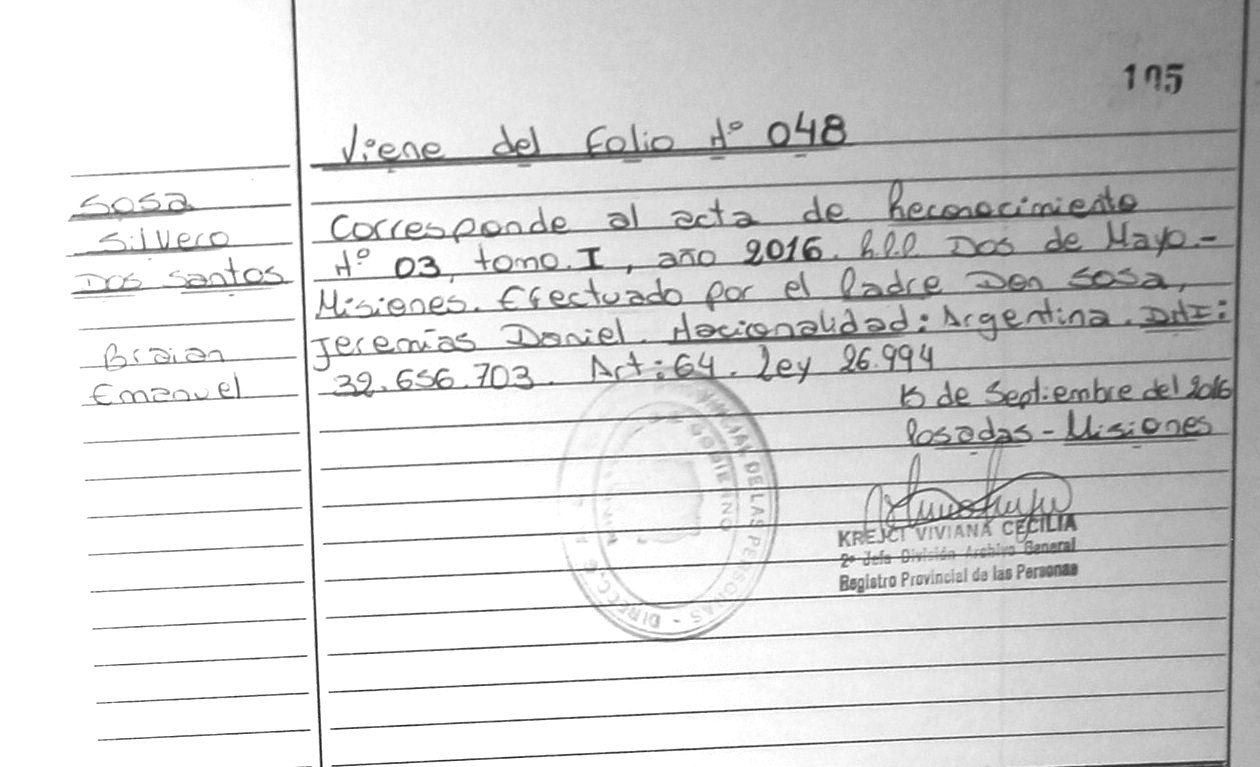 105
Viene del Folio Nº 048
Sosa
Silvero
Dos Santos
Braian
Emanuel
Corresponde al acta de Reconocimiento
Nº 03, tomo I, año 2016. R.P.P Dos de Mayo -
Misiones. Efectuado por el Padre Don Sosa,
Jeremías Daniel. Nacionalidad: Argentina. DNI:
32.656.703. Art: 64. Ley 26.994
15 de Septiembre del 2016
Posadas - Misiones
KREJCI VIVIANA CECILIA
2º Jefe División Archivo General
Registro Provincial de las Personas
DE LAS PERSONAS - DIRECC.
GOBIERNO